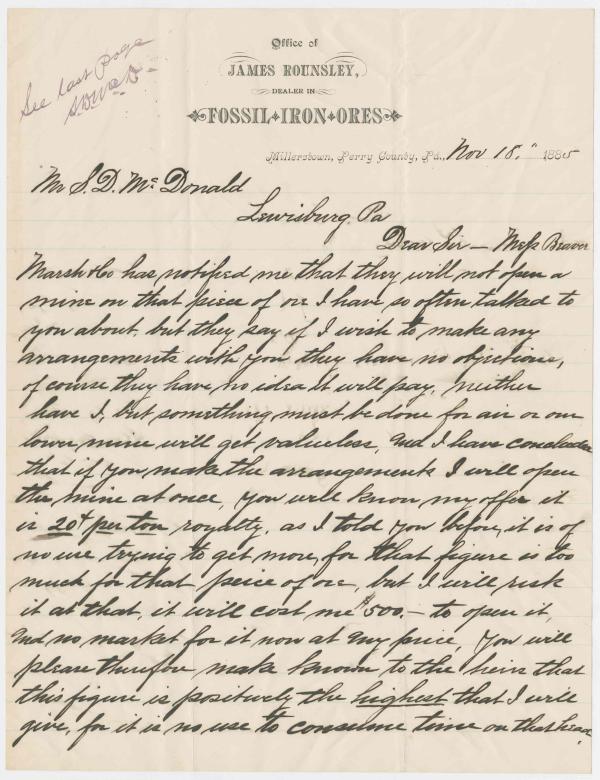 See last page
S.D. McD-
Office of
JAMES ROUNSLEY,
DEALER IN
FOSSIL IRON ORES
Millerstown, Perry County, Pa., Nov 18." 1885
Mr S. D. Mc Donald
Lewisburg Pa
Dear Sir - Mess Beaver
Marsh & Co has notified me that they will not open a
mine on that piece of ore I have so often talked to
you about, but they say if I wish to make any
arrangements with you they have no objections,
of course they have no idea it will pay, neither
have I, but something must be done for air or our
lower mine will get valueless, and I have concluded
that if you make the arrangements I will open
the mine at once, you will know my offer it
is 20¢ per ton royalty, as I told you before, it is of
no use trying to get more, for that figure is too
much for that peice of ore, but I will risk
it at that, it will cost me $500.- to open it,
and no market for it now at any price, You will
please therefore make known to the heirs that
this figure is positively the highest that I will
give, for it is no use to consume time on that head.